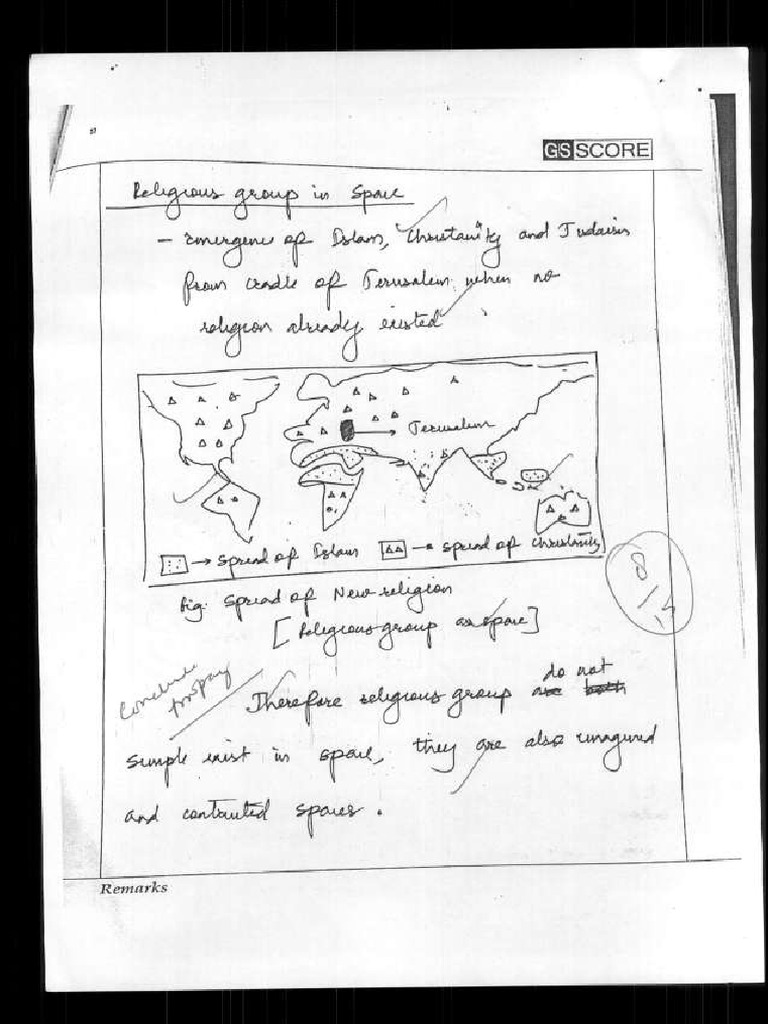 GS SCORE
Religious group in Space
- emergence of Islam, Christianity and Judaism
from cradle of Jerusalem when no
religion already existed
Jerusalem
→ Spread of Islam → Spread of Christianity
fig: Spread of New religion
[Religious group as space]
Conclude
do not
Therefore religious group are both
simple exist in space, they are also imagined
and spaces.
Remarks